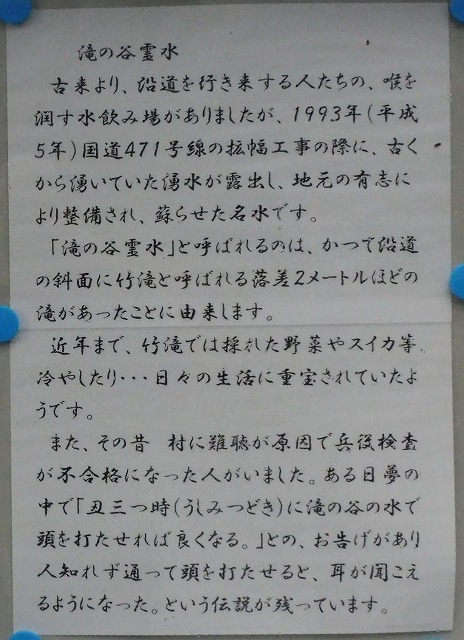 滝の谷霊水
古来より、沿道を行き来する人たちの、喉を
潤す水飲み場がありましたが、1993年(平成
5年)国道471号線の拡幅工事の際に、古く
から湧いていた湧水が露出し、地元の有志に
より整備され、蘇らせた名水です。
「滝の谷霊水」と呼ばれるのは、かつて沿道
の斜面に竹滝と呼ばれる落差2メートルほどの
滝があったことに由来します。
近年まで、竹滝では採れた野菜やスイカ等
冷やしたり・・・日々の生活に重宝されていたよ
うです。
また、その昔 村に難聴が原因で兵役検査
が不合格になった人がいました。ある日夢の
中で「丑三つ時(うしみつどき)に滝の谷の水で
頭を打たせれば良くなる。」との、お告げがあり
人知れず通って頭を打たせると、耳が聞こえ
るようになった。という伝説が残っています。